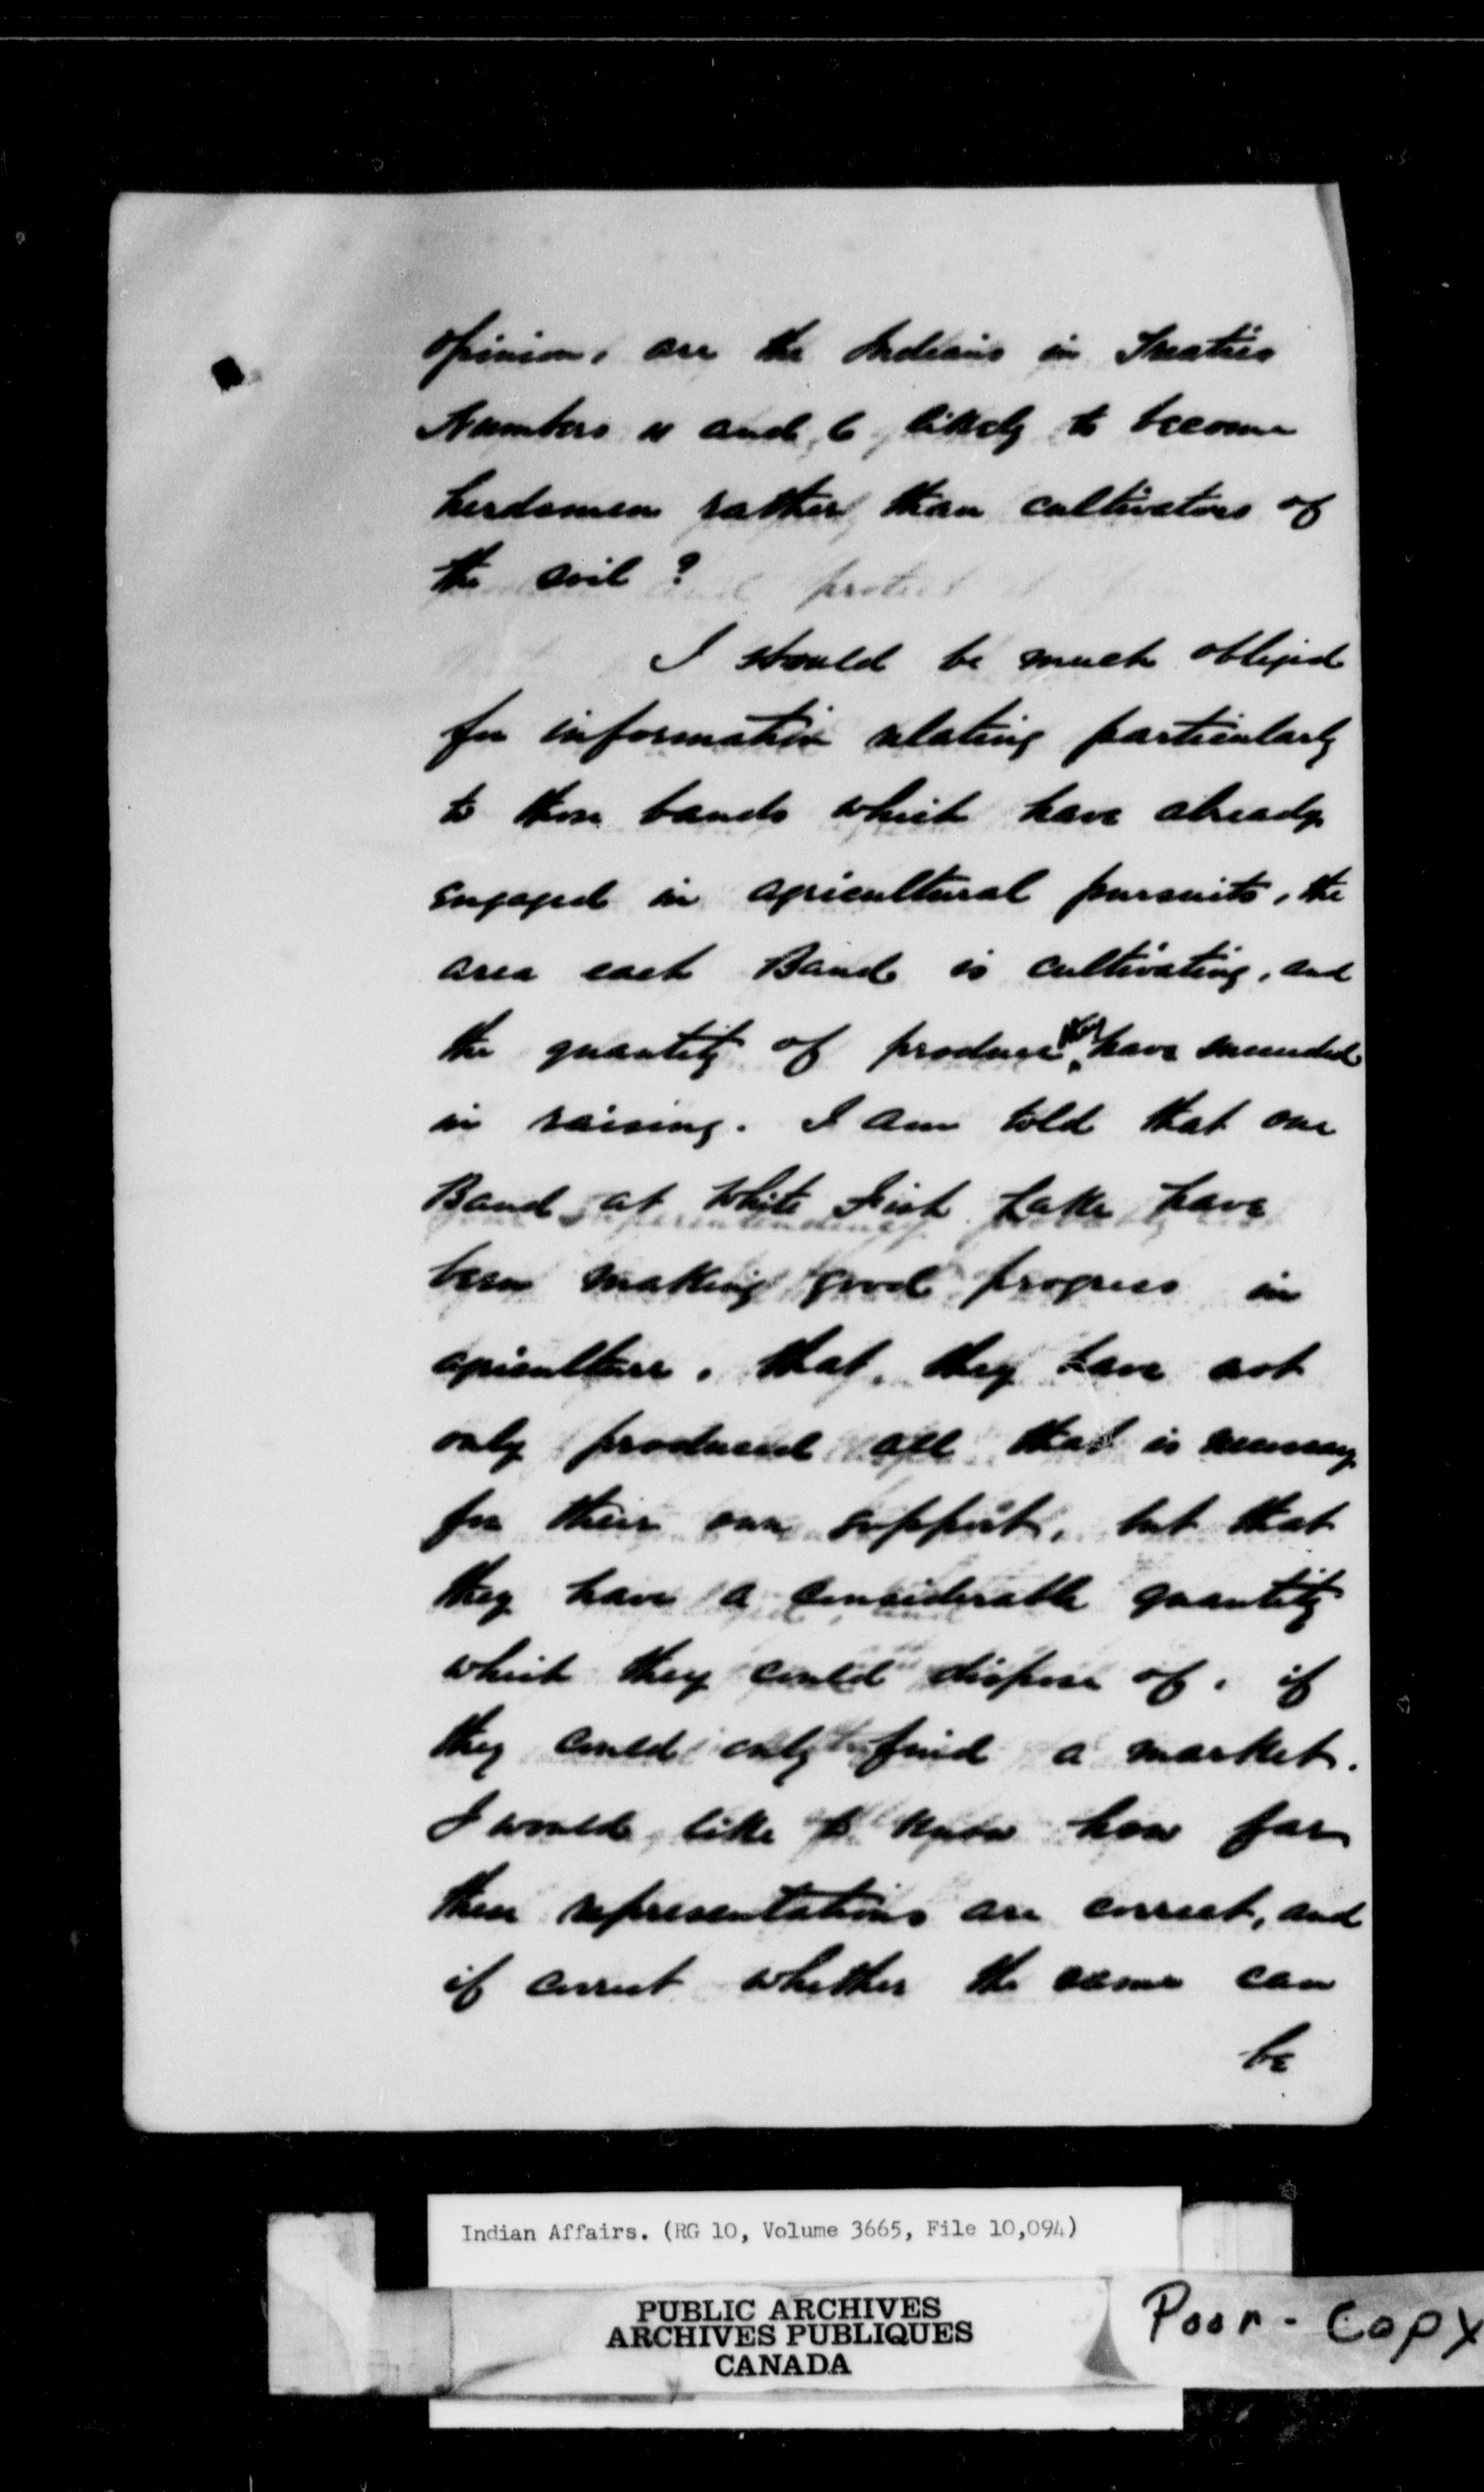 opinion, are the Indians in Treaties
Numbers 4 and 6, likely to become
herdsmen rather than cultivators of
the soil?
I should be much obliged
for information relating particularly
to those bands which have already
engaged in agricultural pursuits, the
area each Band is cultivating, and
the quantity of produce they have succeeded
in raising. I am told that one
Band at White Fish Lake have
been making good progress in
agriculture, that, they have not
only produced all that is necessary
for their own support, but that
they have a considerable quantity
which they could dispose of, if
they could only find a market.
I would like to know how far
these representations are correct, and
if correct whether the same can
be
Indian Affairs. (RG 10, Volume 3665, File 10,094)
PUBLIC ARCHIVES
ARCHIVES PUBLIQUES
CANADA
Poor - Copy